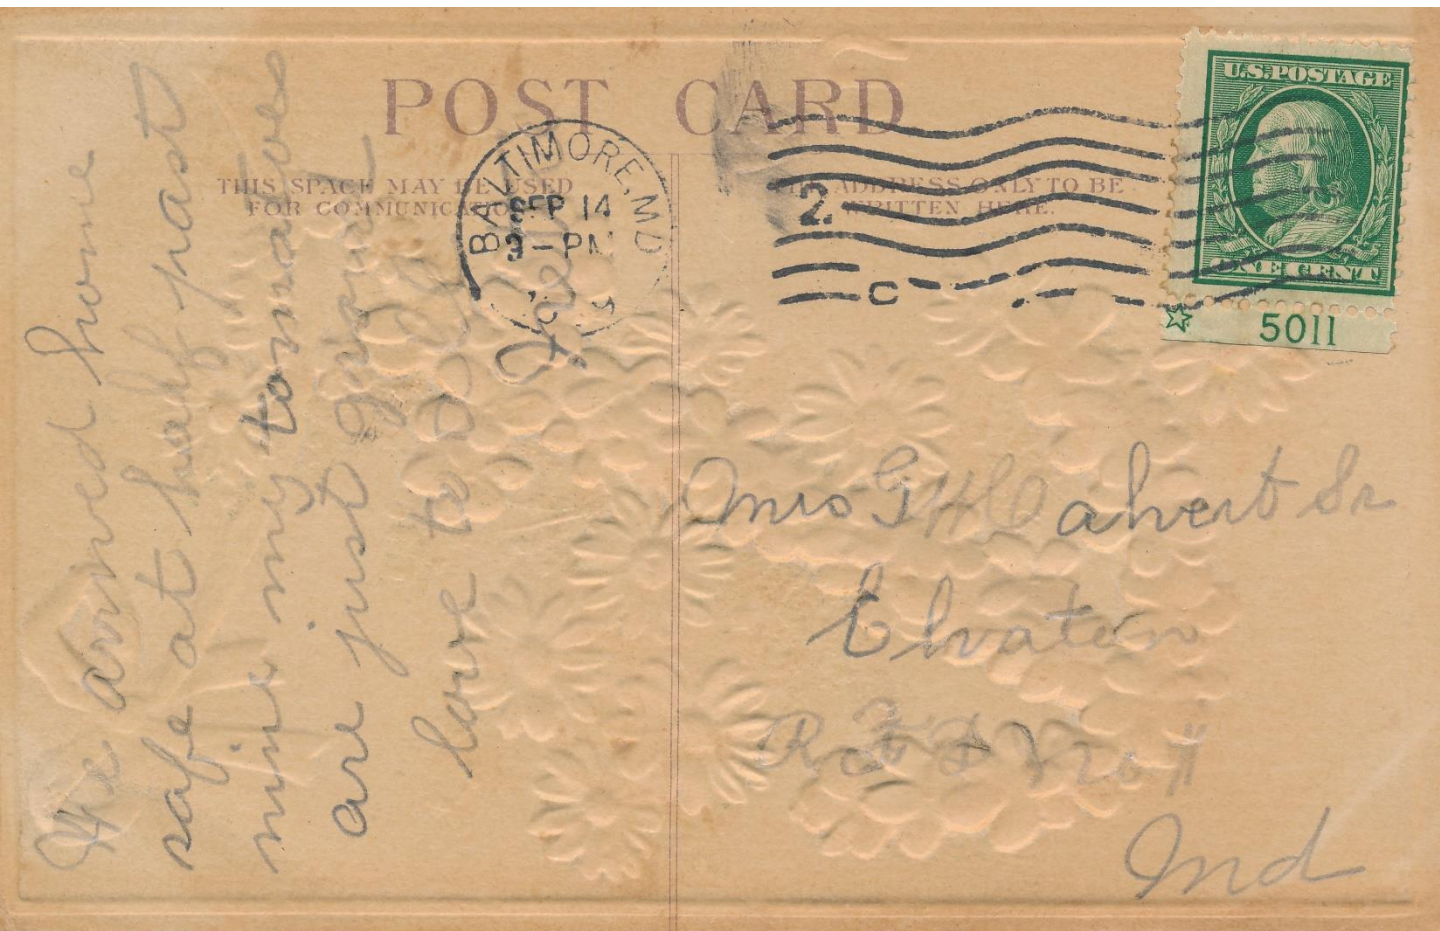 POST CARD
THIS SPACE MAY BE USED
FOR COMMUNICATION
ADDRESS ONLY TO BE
WRITTEN HERE.
BALTIMORE, MD
SEP 14
3-PM
2
C
U.S. POSTAGE
ONE CENT
5011
We arrived home
safe at half past
nine my tomatoes
are just grand
love to all
Mrs G H Calvert Sr
Elvaton
R F D No 1
Md